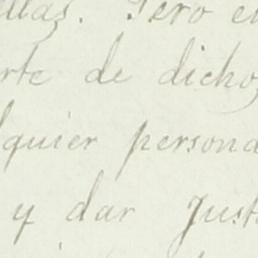 ellas. Pero e
rte de dicho
lquier persona
y dar Just